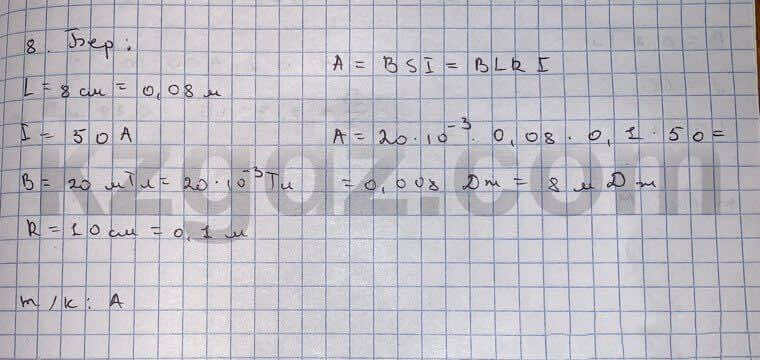 8. Бер:
L = 8 см = 0,08 м
I = 50 А
B = 20 мТл = 20 · 10⁻³ Тл
R = 10 см = 0,1 м
т/к: A
A = BSI = BLRI
A = 20 · 10⁻³ · 0,08 · 0,1 · 50 =
= 0,008 Дж = 8 мДж
kzgdz.com